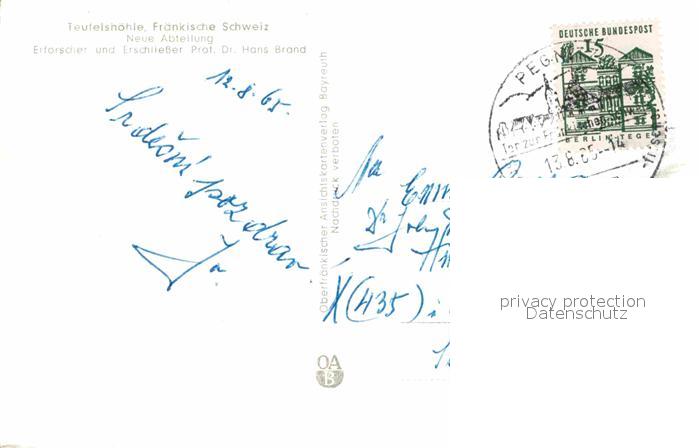 Teufelshöhle, Fränkische Schweiz
Neue Abteilung
Erforscher und Erschließer Prof. Dr. Hans Brand
12.8.65.
Srdečni pozdrav
Oberfränkischer Ansichtskartenverlag Bayreuth
Nachdruck verboten
OA
B
DEUTSCHE BUNDESPOST
15
BERLIN-TEGEL
PEGNI
Tor zur Fränkischen Schweiz
13.8.65.-14
Na
Dr
(435)
privacy protection
Datenschutz